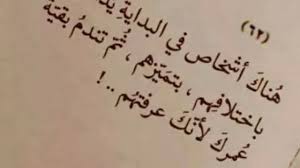 (٦٢)
هُناكَ أشخاص في البداية
باختلافِهِم ، بتميّزهم ، ثُمّ تندمُ بقيّة
عُمركَ لأنّكَ عرفتَهُم ..!